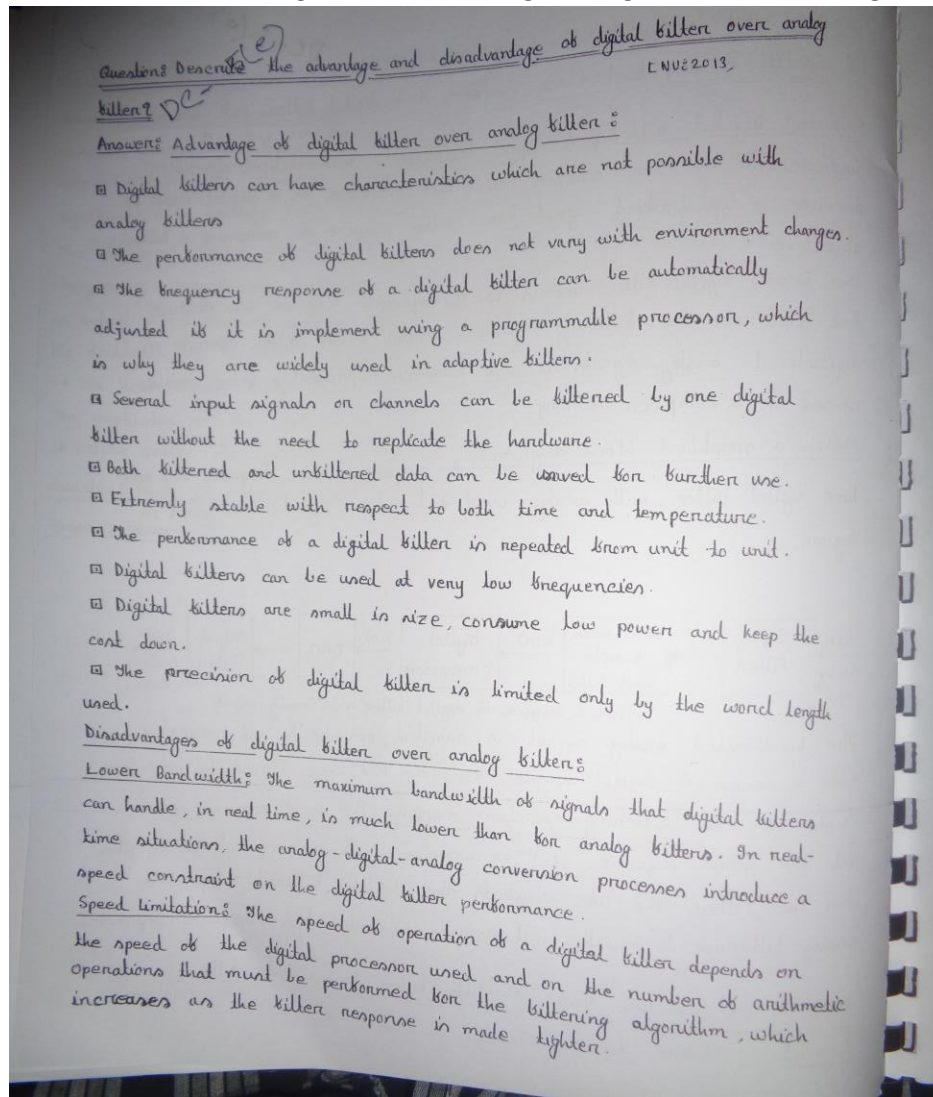 Question: Describe the advantage and disadvantage of digital filter over analog
[NUE2013,
filter?
Answer: Advantage of digital filter over analog filter:
Digital filters can have characteristics which are not possible with
analog filters
The performance of digital filters does not vary with environment changes.
The frequency response of a digital filter can be automatically
adjusted if it is implement using a programmable processor, which
is why they are widely used in adaptive filters.
Several input signals or channels can be filtered by one digital
filter without the need to replicate the hardware.
Both filtered and unfiltered data can be saved for further use.
Extremly stable with respect to both time and temperature.
The performance of a digital filter is repeated from unit to unit.
Digital filters can be used at very low frequencies.
Digital filters are small in size, consume low power and keep the
cost down.
The precision of digital filter is limited only by the word length
used.
Disadvantages of digital filter over analog filter:
Lower Bandwidth: The maximum bandwidth of signals that digital filters
can handle, in real time, is much lower than for analog filters. In real-
time situations, the analog-digital-analog conversion processes introduce a
speed constraint on the digital filter performance.
Speed Limitation: The speed of operation of a digital filter depends on
the speed of the digital processor used and on the number of arithmetic
operations that must be performed for the filtering algorithm, which
increases as the filter response is made tighter.